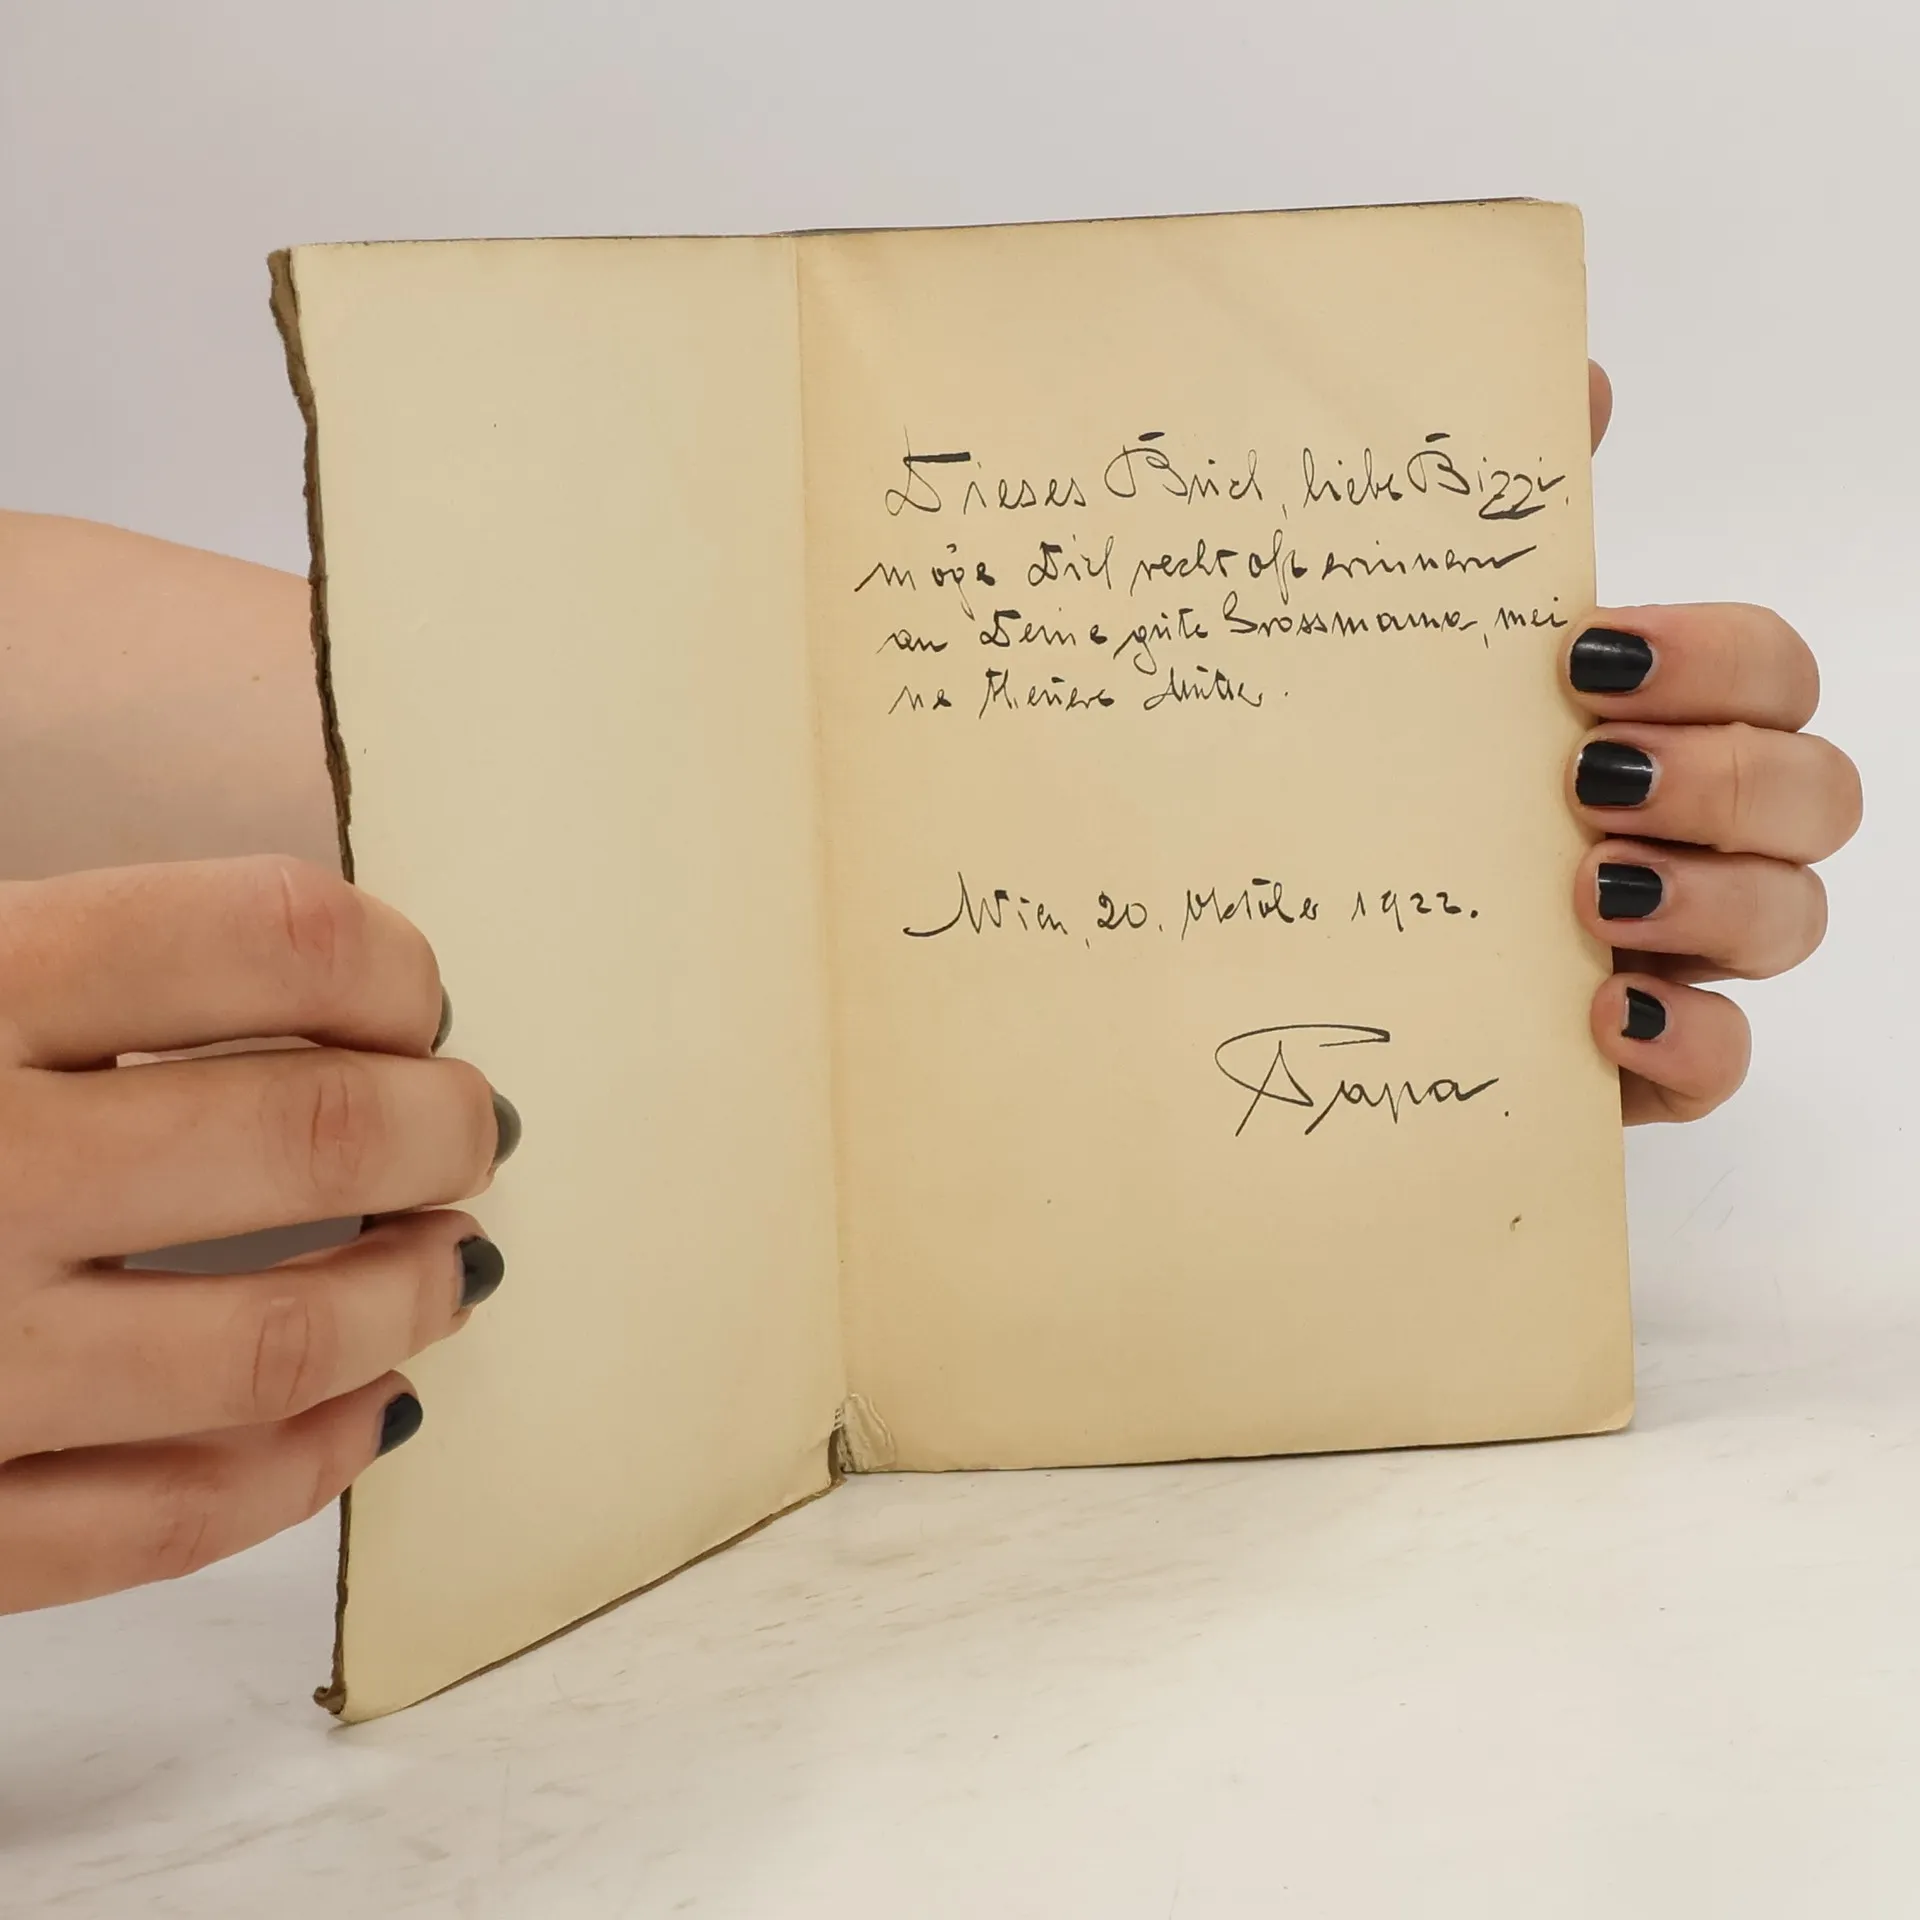 Dieses Buch, liebe Bizzi,
möge Dich recht oft erinnern
an Deine gute Grossmama, mei
ne theuere Mutter.
Wien, 20. Oktober 1922.
Papa.